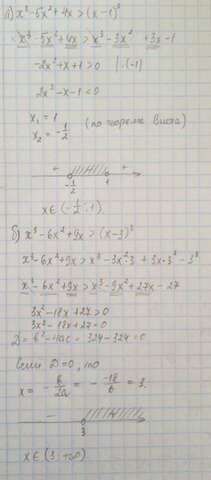 а) x³ - 5x² + 4x > (x - 1)³
x³ - 5x² + 4x > x³ - 3x² + 3x - 1
-2x² + x + 1 > 0 | · (-1)
2x² - x - 1 < 0
x₁ = 1
x₂ = -1/2 (по теореме Виета)
+ - +
-1/2 1
x ∈ (-1/2; 1)
б) x³ - 6x² + 9x > (x - 3)³
x³ - 6x² + 9x > x³ - 3x²·3 + 3x·3² - 3³
x³ - 6x² + 9x > x³ - 9x² + 27x - 27
3x² - 18x + 27 > 0
3x² - 18x + 27 = 0
D = b² - 4ac = 324 - 324 = 0
Если D = 0, то
x = - b/2a = - -18/6 = 3.
-
3
x ∈ (3; +∞)